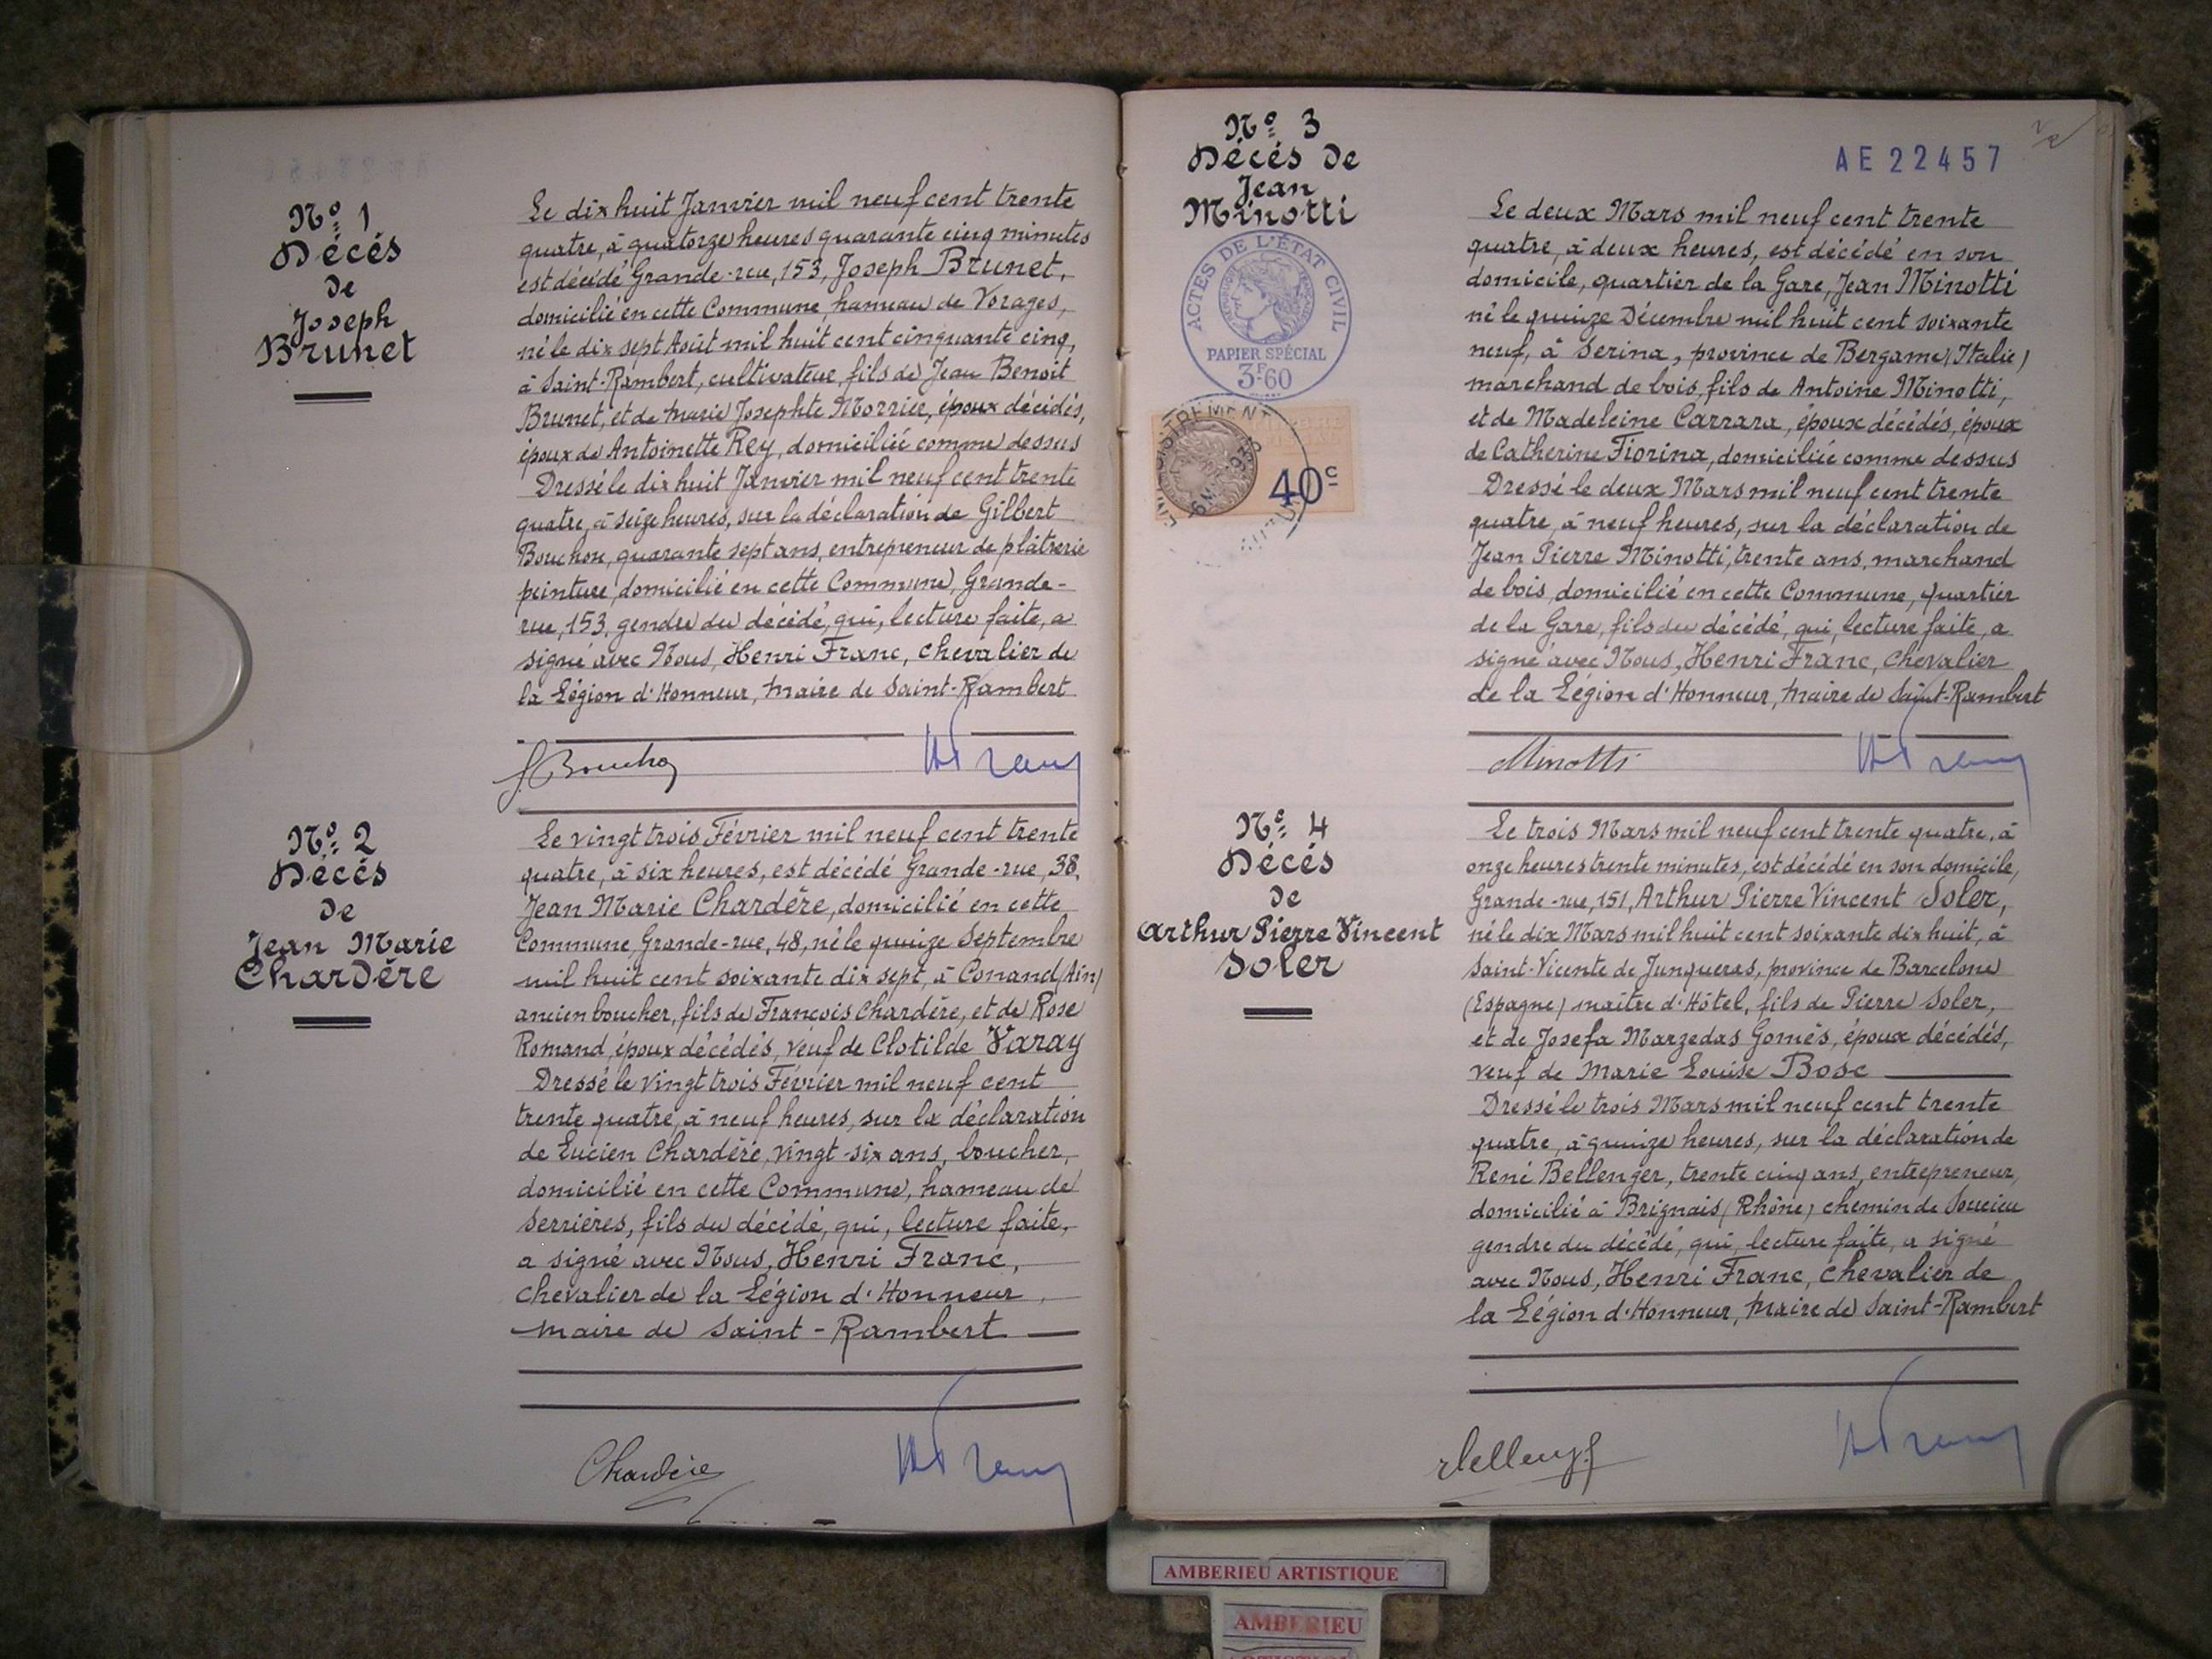 N° 1
Décés
de
Joseph
Brunet
Le dix huit Janvier mil neuf cent trente
quatre, à quatorze heures quarante cinq minutes
est décédé Grande-rue, 153, Joseph Brunet,
domicilié en cette Commune, hameau de Vorages,
né le dix sept Août mil huit cent cinquante cinq,
à Saint-Rambert, cultivateur, fils de Jean Benoit
Brunet, et de Marie Josephte Morrier, époux décédés,
époux de Antoinette Rey, domiciliée comme dessus
Dressé le dix huit Janvier mil neuf cent trente
quatre, à seize heures, sur la déclaration de Gilbert
Bouchon, quarante sept ans, entrepreneur de plâtrerie
peinture, domicilié en cette Commune, Grande-
rue, 153, gendre du décédé, qui, lecture faite, a
signé avec Nous, Henri Franc, Chevalier de
la Légion d'Honneur, Maire de Saint-Rambert
N° 2
Décés
de
Jean Marie
Chardère
Le vingt trois Février mil neuf cent trente
quatre, à six heures, est décédé Grande-rue, 38,
Jean Marie Chardère, domicilié en cette
Commune, Grande-rue, 48, né le quinze Septembre
mil huit cent soixante dix sept, à Conand (Ain)
ancien boucher, fils de François Chardère, et de Rose
Romand, époux décédés, veuf de Clotilde Varay
Dressé le vingt trois Février mil neuf cent
trente quatre, à neuf heures, sur la déclaration
de Lucien Chardère, vingt-six ans, boucher,
domicilié en cette Commune, hameau de
Serrières, fils du décédé, qui, lecture faite,
a signé avec Nous, Henri Franc,
Chevalier de la Légion d'Honneur,
Maire de Saint-Rambert
Chardère
N° 3
Décés de
Jean
Minotti
ACTES DE L'ÉTAT CIVIL
PAPIER SPÉCIAL
3F60
40c
AE 22457
Le deux Mars mil neuf cent trente
quatre, à deux heures, est décédé en son
domicile, quartier de la Gare, Jean Minotti
né le quinze Décembre mil huit cent soixante
neuf, à Serina, province de Bergame (Italie)
marchand de bois, fils de Antoine Minotti,
et de Madeleine Carrara, époux décédés, époux
de Catherine Fiorina, domiciliée comme dessus
Dressé le deux Mars mil neuf cent trente
quatre, à neuf heures, sur la déclaration de
Jean Pierre Minotti, trente ans, marchand
de bois, domicilié en cette Commune, quartier
de la Gare, fils du décédé, qui, lecture faite, a
signé avec Nous, Henri Franc, Chevalier
de la Légion d'Honneur, Maire de Saint-Rambert
Minotti
N° 4
Décés
de
Arthur Pierre Vincent
Soler
Le trois Mars mil neuf cent trente quatre, à
onze heures trente minutes, est décédé en son domicile,
Grande-rue, 151, Arthur Pierre Vincent Soler,
né le dix Mars mil huit cent soixante dix huit, à
Saint-Vicente de Junqueras, province de Barcelone
(Espagne) maître d'Hôtel, fils de Pierre Soler,
et de Josefa Marzedas Gomés, époux décédés,
veuf de Marie Louise Bosc
Dressé le trois Mars mil neuf cent trente
quatre, à quinze heures, sur la déclaration de
René Bellenger, trente cinq ans, entrepreneur,
domicilié à Brignais (Rhône) chemin de Soucieu
gendre du décédé, qui, lecture faite, a signé
avec Nous, Henri Franc, Chevalier de
la Légion d'Honneur, Maire de Saint-Rambert
AMBERIEU ARTISTIQUE
AMBERIEU